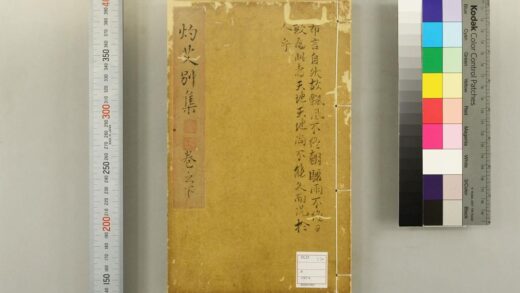 希言自然故飄風不終朝驟雨不終日
孰為此者天地天地尚不能久而況於
人乎
灼艾別集
卷之下
350
300
250
200
Kodak Color Control Patches
Blue
Cyan
Green
Yellow
Red
Magenta
White
3/Color
Black